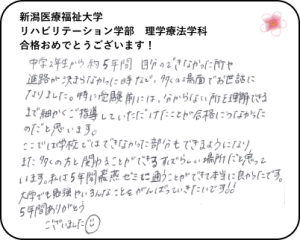 新潟医療福祉大学
リハビリテーション学部　理学療法学科
合格おめでとうございます！
中学2年生から約5年間 自分のできなかった所や
進路が決まらなかった時など、多くの場面でお世話に
なりました。特に受験前には、分からない所を理解できる
まで細かくご指導していただけたことが合格につながった
のだと思います。
ここでは学校ではできなかった部分もできるようになり、
また多くの方と関わることができるすばらしい場所だと思って
います。私は5年間 ゼミに通うことができて本当に良かったです。
大学でも勉強やいろんなことをがんばっていきたいです!!
5年間ありがとう
ございました